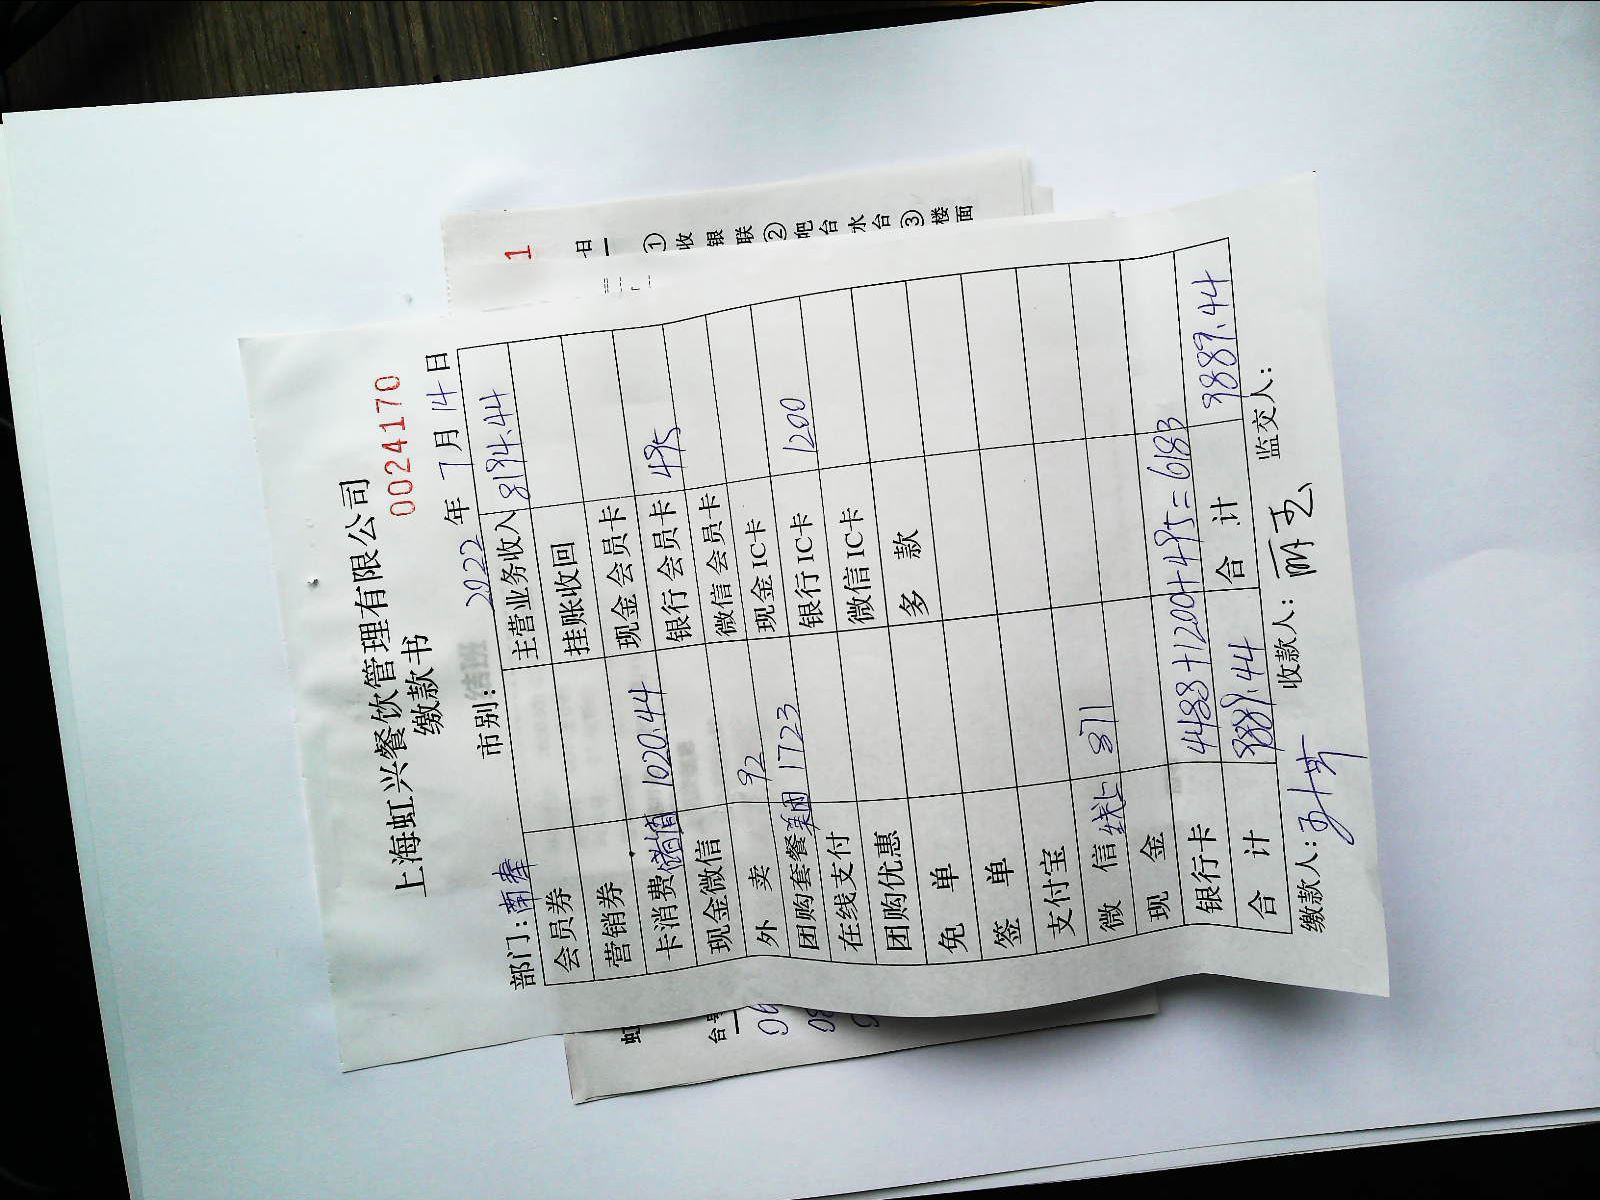 上海虹兴餐饮管理有限公司
缴款书 0024170
部门: 市别: 2022 年 7 月 14 日
会员券 主营业务收入 8194.44
营销券 挂账收回
卡消费 储值 1020.44 现金会员卡
现金微信 银行会员卡 495
外 卖 92 微信会员卡
团购套餐 美团 1723 现金IC卡
在线支付 银行IC卡 1200
团购优惠 微信IC卡
免 单 多 款
签 单
支付宝
微 信 线上 871
现 金
银行卡 4488+1200+495=6183
合 计 9889.44 合 计 9889.44
缴款人: 收款人: 监交人:
1
日
①收银联②吧台水台③楼面
虹
台号